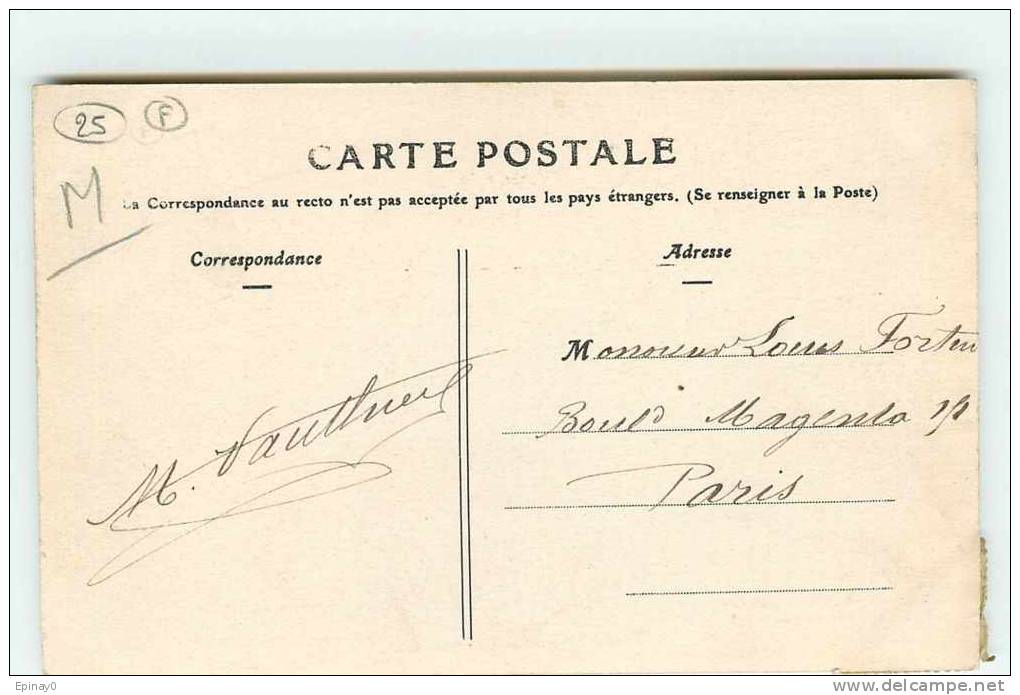 25 F
M
CARTE POSTALE
La Correspondance au recto n'est pas acceptée par tous les pays étrangers. (Se renseigner à la Poste)
Correspondance
Adresse
Monsieur Louis
Bould Magenta
Paris
M.
Epinay0
delcampe.net